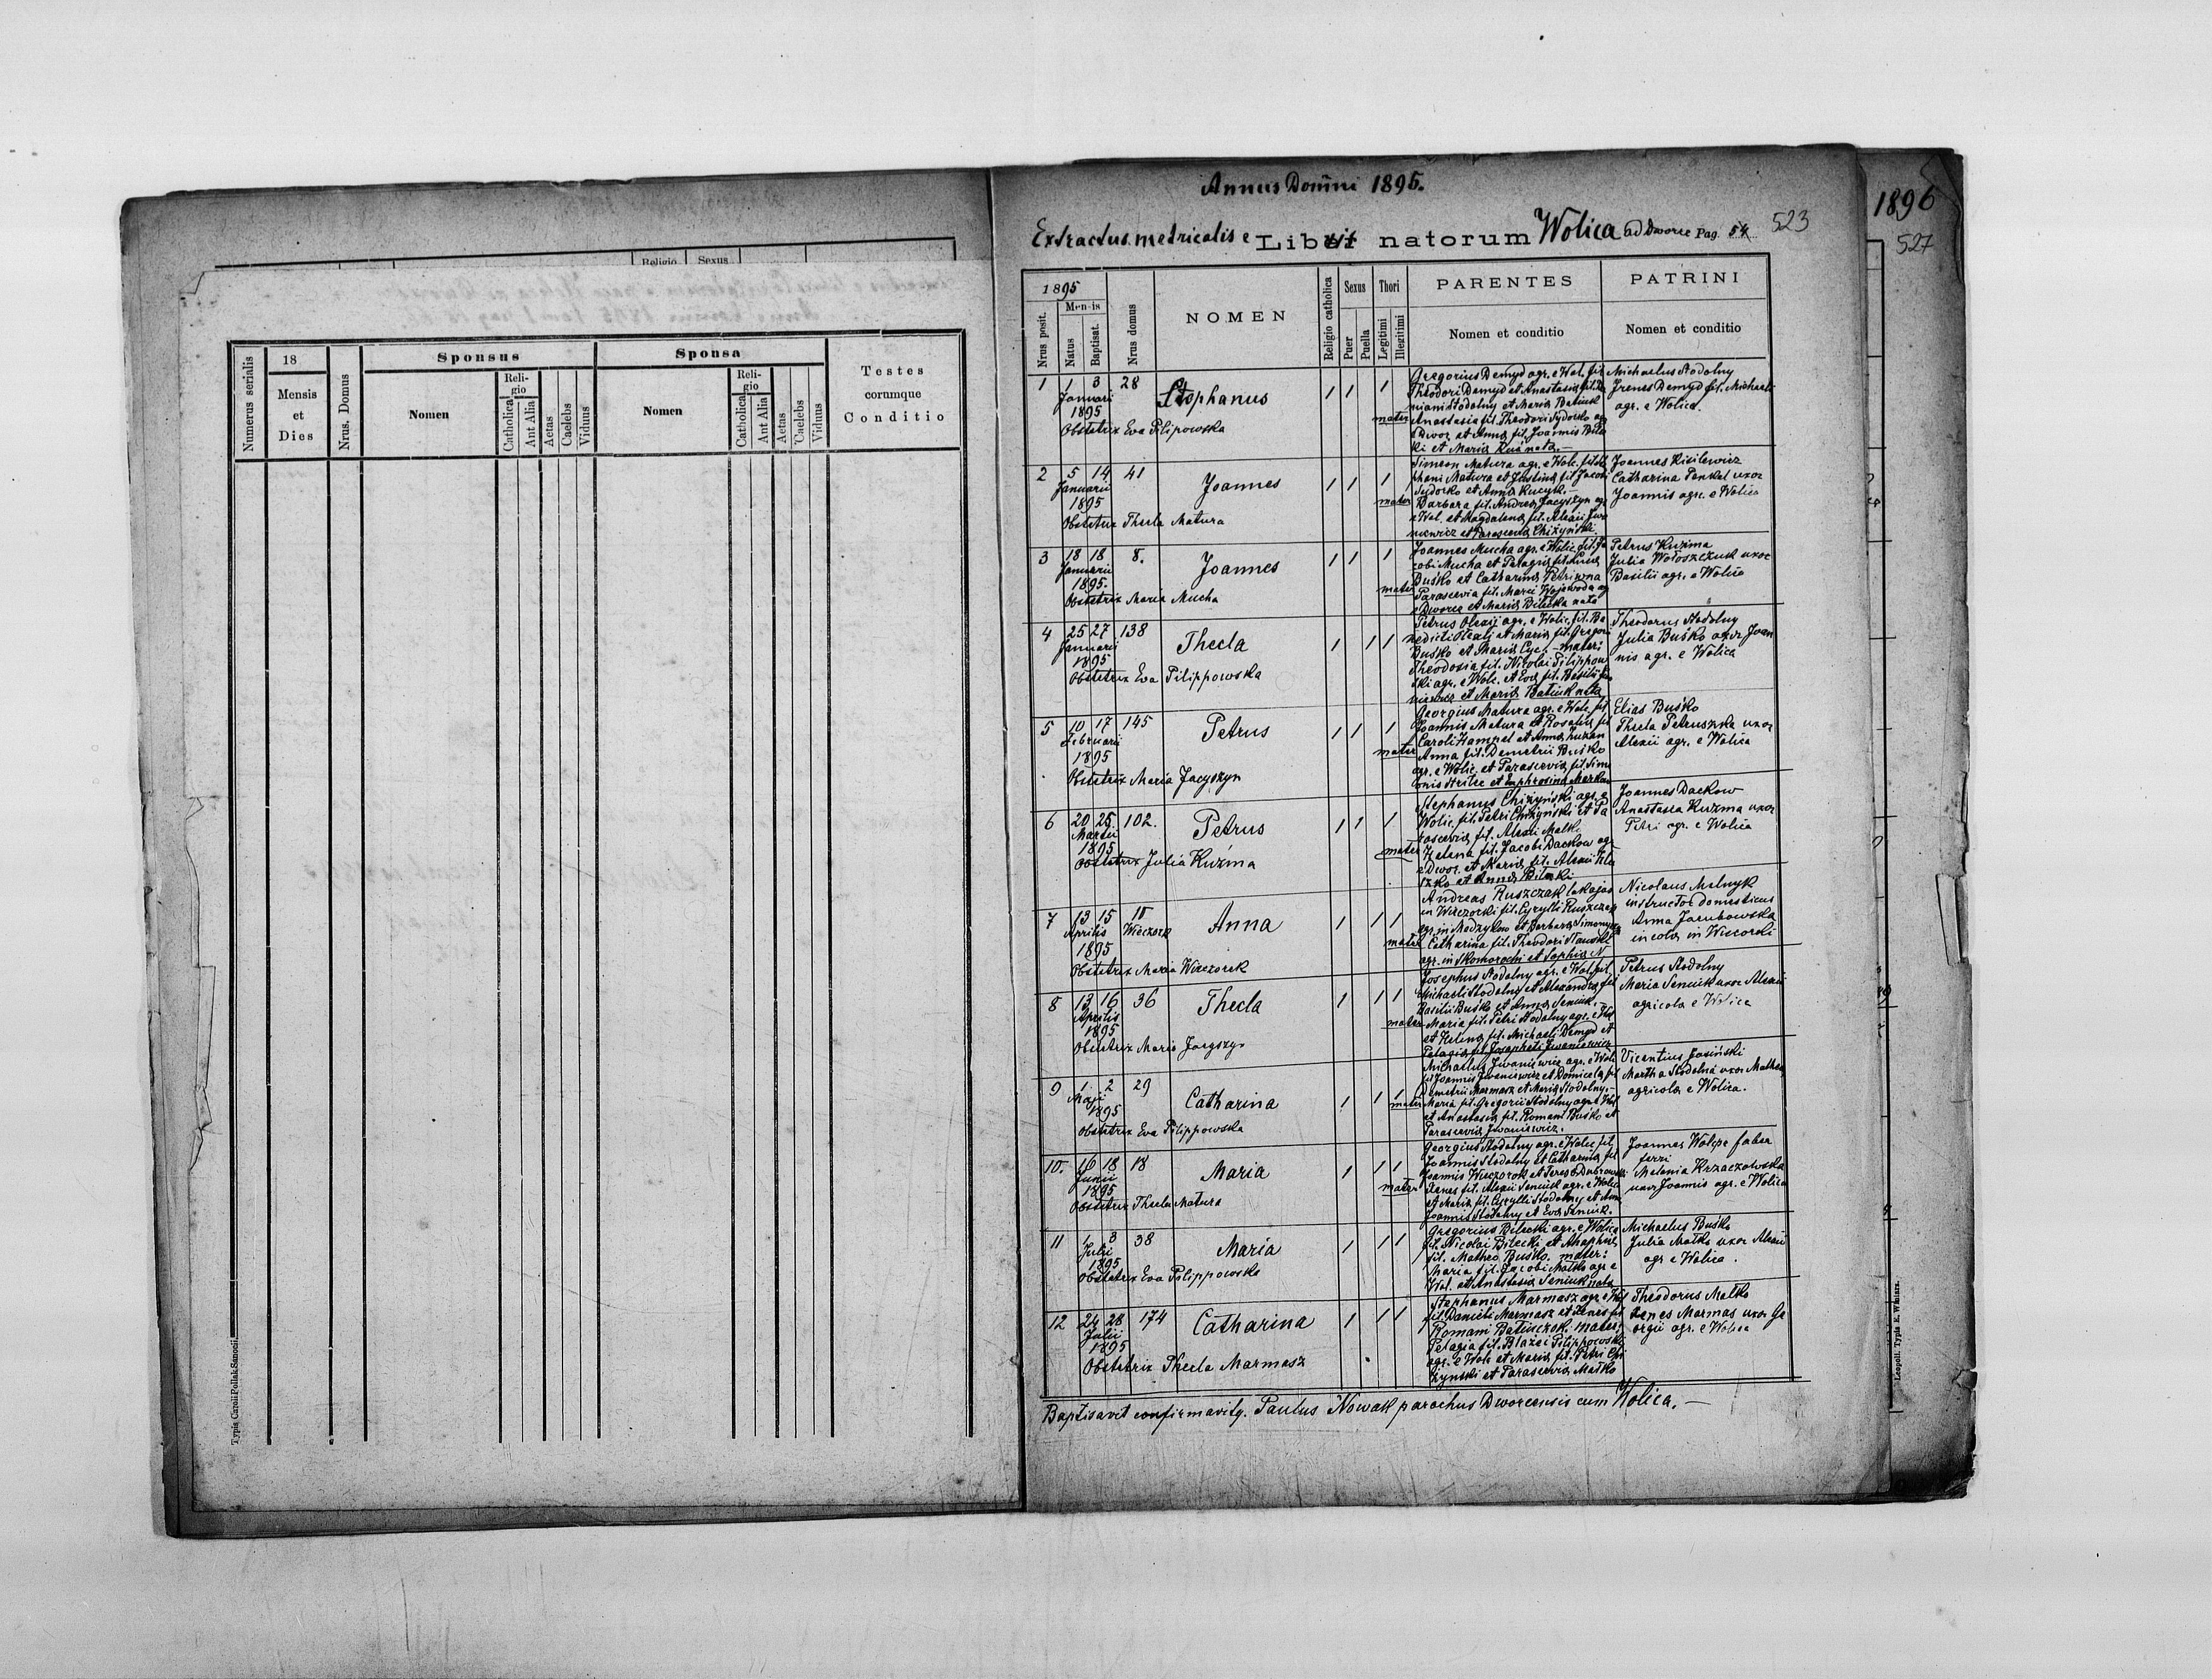 Religio Sexus
Numerus serialis
18
Mensis
et
Dies
Nrus. Domus
Sponsus
Nomen
Reli-
gio
Catholica
Ant Alia
Aetas
Caelebs
Viduus
Sponsa
Nomen
Reli-
gio
Catholica
Ant Alia
Aetas
Caelebs
Viduus
Testes
eorumque
Conditio
Typis Caroli Pollak Sanoci
Annus Domini 1895.
Extractus metricalis e Libri natorum Wolica ad Dworce Pag. 54 523
1895
Nrus posit.
Mensis
Natus
Baptisat.
Nrus domus
NOMEN
Religio catholica
Sexus
Puer
Puella
Thori
Legitimi
Illegitimi
PARENTES
Nomen et conditio
PATRINI
Nomen et conditio
1 1 3 28 Stephanus 1 1 1
Januari
1895
Obstetrix Eva Pilipowska
mater
Gregorius Demyd agr. e Wol. fil.
Theodori Demyd et Anastasia fil. Da
miani Stodolny et Maria Batiuk
Anastasia fil. Theodori Sydorko agr.
e Dwor. et Anna fil. Joannis Bile
ki et Maria nata.
Michaelus Stodolny
Irenes Demyd fil. Michaeli
agr. e Wolica.
2 5 14 41 Joannes 1 1 1
Januarii
1895
Obstetrix Thecla Matura
mater
Simeon Matura agr. e Wolic. fil. Ste
phani Matura et Justina fil. Jacobi
Sydorko et Anna Kucyk.
Barbara fil. Andrea Jacyszyn agr.
e Wol. et Magdalena fil. Alexii Iwa
niewicz et Parascevia Chizyński
Joannes Kisilewicz
Catharina Penkal uxor
Joannis agr. e Wolica
3 18 18 8. Joannes 1 1 1
Januarii
1895.
Obstetrix Maria Mucha
mater
Joannes Mucha agr. e Wolic. fil. Ja
cobi Mucha et Pelagia fil.
Buśko et Catharina
Parascevia fil. Wojewoda agr
e Dworce et Maria Bilecka nata
Petrus Kuzima
Julia Wołoszczuk uxor
Basilii agr. e Wolica
4 25 27 138 Thecla 1 1 1
Januarii
1895
Obstetrix Eva Pilippowska
Petrus Olexij agr. e Wolic. fil. Be
nedicti Olexij et Maria fil. Gregori
Buśko et Maria Cyc. - mater:
Theodosia fil. Nicolai Pilippow
ski agr. e Wolic. et Eva fil. Basilii Iwa
niewicz et Maria Batiuk nata
Theodorus Stodolny
Julia Buśko uxor Joan
nis agr. e Wolica
5 10 17 145 Petrus 1 1 1
Februarii
1895
Obstetrix Maria Jacyszyn
mater
Georgius Matura agr. e Wol. fil.
Joannis Matura et Rosalia fil.
Caroli Hampel et Anna
Anna fil. Demetrii Buśko
agr. e Wolic. et Parascevia fil. Sime
onis et Euphrosina
Elias Buśko
Thecla Petruszka uxor
Alexii agr. e Wolica
6 20 25 102. Petrus 1 1 1
Martii
1895
Obstetrix Julia Kuzma
mater
Stephanus Chizyński agr. e
Wolic. fil. Petri Chizyński et Pa
rascevia fil. Alexii Matko
Helena fil. Jacobi Dackow agr
e Dwor. et Maria fil. Alexii
et Anna Bilecki
Joannes Dackow
Anastasia Kuzma uxor
Petri agr. e Wolica
7 13 15 Anna 1 1 1
Aprilis Wieczork
1895
Obstetrix Maria Wieczorek
mater
Andreas Ruszczak lakajao
in Wieczorki fil. Cyrylli Ruszczak
agr. in et Barbara
Catharina fil. Theodori
agr. in Skomorochi et Sophia
Nicolaus Melnyk
instructor domesticus
Anna Jarubowska
incola in Wieczorki
8 13 16 36 Thecla 1 1 1
Aprilis
1895
Obstetrix Maria Jacyszyn
mater
Josephus Stodolny agr. e Wol. fil.
Michaeli Stodolny et Alexandra fil.
Basilii Buśko et Anna Seniuk.
Maria fil. Petri Stodolny agr. e Wol.
et Helena fil. Michaeli Demyd et
Pelagia fil. Josaphati Iwaniewicz
Petrus Stodolny
Maria Seniuk uxor Alexii
agricola e Wolica
9 1 2 29 Catharina 1 1 1
Maji
1895
Obstetrix Eva Pilippowska
mater
Michaelus Iwaniewicz agr. e Wol.
fil. Joannis Iwaniewicz et Domicela fil.
Demetrii Marmasz et Maria Stodolny.
Maria fil. Gregorii Stodolny agr. e Wol.
et Anastasia fil. Romani Buśko et
Parascevia Iwaniewicz.
Vicentius Josiński
Martha Stodolna uxor Mathei
agricola e Wolica.
10. 16 18 18 Maria 1 1 1
Junii
1895
Obstetrix Thecla Matura
mater
Georgius Stodolny agr. e Wolic. fil.
Joannis Stodolny et Catharina fil.
Joannis Wieczorek et Teresa Dubrowski
Irenes fil. Alexii Seniuk agr. e Wolica
et Maria fil. Cyrylli Stodolny et Anna
Joannis Stodolny et Eva Seniuk.
Joannes Wolepe faber
ferri
Melania Krzaczowska
uxor Joannis agr. e Wolica
11 1 3 38 Maria 1 1 1
Julii
1895
Obstetrix Eva Pilippowska
Gregorius Bilecki agr. e Wolica
fil. Nicolai Bilecki et Anaphia
fil. Matheo Buśko. mater:
Maria fil. Jacobi Matko agr. e
Wol. et Anastasia Seniuk nata
Michaelus Buśko
Julia Matko uxor Alexii
agr e Wolica.
12 24 28 174 Catharina 1 1 1
Julii
1895
Obstetrix Thecla Marmasz
Stephanus Marmasz agr. e Wol.
fil. Danieli Marmasz et Irenes fil.
Romani Batiuczok. mater:
Pelagia fil. Blazei Pilippowski
agr. e Wol. et Maria fil. Petri Chi
zynski et Parascevia Matko
Theodorus Matko
Irenes Marmas uxor Ge
orgii agr. e Wolica
Baptisavit confirmavitq. Paulus Nowak parochus Dworcensis cum Wolica. —
1896
527
Leopoli. Typis E. Winiarz.